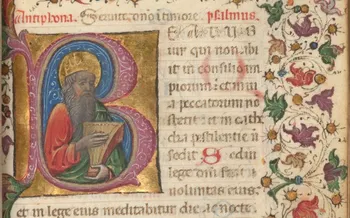 Antiphona. Seruite dño ĩ timore. psalmus.
B
Eatus uir
qui non abi
it in consilium
impiorum: et in uia
peccatorum no
stetit: et in cath
dra pestilentie ñ
sedit Sed in
lege dñi
uoluntas eius:
et in lege eius meditabitur die ac nocte